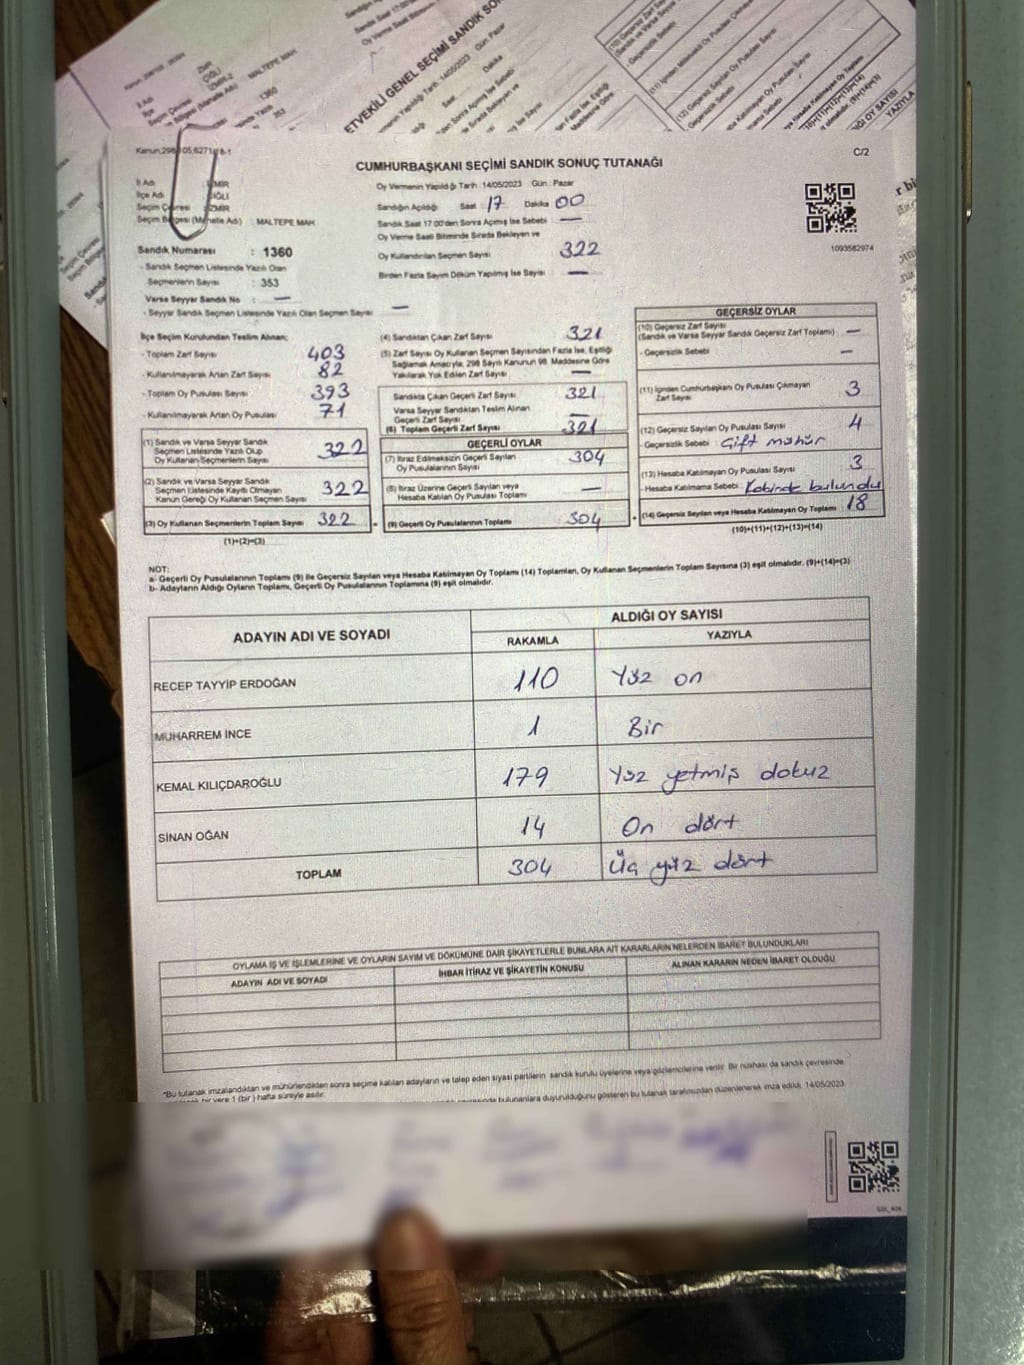 Kanun:298
CUMHURBAŞKANI SEÇİMİ SANDIK SONUÇ TUTANAĞI
C/2
İl Adı İZMİR
İlçe Adı ÇİĞLİ
Seçim Çevresi İZMİR
Seçim Bölgesi (Mahalle Adı) : MALTEPE MAH
Sandık Numarası : 1360
- Sandık Seçmen Listesinde Yazılı Olan
Seçmenlerin Sayısı : 353
Varsa Seyyar Sandık No : —
- Seyyar Sandık Seçmen Listesinde Yazılı Olan Seçmen Sayısı: —
Oy Vermenin Yapıldığı Tarih :14/05/2023 Gün : Pazar
Sandığın Açıldığı Saat 17 Dakika 00
Sandık Saat 17:00'den Sonra Açılmış İse Sebebi —
Oy Verme Saati Bitiminde Sırada Bekleyen ve
Oy Kullandırılan Seçmen Sayısı 322
Birden Fazla Sayım Döküm Yapılmış İse Sayısı —
1093582974
İlçe Seçim Kurulundan Teslim Alınan;
- Toplam Zarf Sayısı 403
- Kullanılmayarak Artan Zarf Sayısı 82
- Toplam Oy Pusulası Sayısı 393
- Kullanılmayarak Artan Oy Pusulası 71
(1) Sandık ve Varsa Seyyar Sandık
Seçmen Listesinde Yazılı Olup
Oy Kullanan Seçmenlerin Sayısı 322
(2) Sandık ve Varsa Seyyar Sandık
Seçmen Listesinde Kayıtlı Olmayan
Kanun Gereği Oy Kullanan Seçmen Sayısı 322
(3) Oy Kullanan Seçmenlerin Toplam Sayısı 322
(1)+(2)=(3)
(4) Sandıktan Çıkan Zarf Sayısı 321
(5) Zarf Sayısı Oy Kullanan Seçmen Sayısından Fazla İse, Eşitliği
Sağlamak Amacıyla, 298 Sayılı Kanunun 98. Maddesine Göre
Yakılarak Yok Edilen Zarf Sayısı —
Sandıkta Çıkan Geçerli Zarf Sayısı 321
Varsa Seyyar Sandıktan Teslim Alınan
Geçerli Zarf Sayısı —
(6) Toplam Geçerli Zarf Sayısı 321
GEÇERLİ OYLAR
(7) İtiraz Edilmeksizin Geçerli Sayılan
Oy Pusulalarının Sayısı 304
(8) İtiraz Üzerine Geçerli Sayılan veya
Hesaba Katılan Oy Pusulası Toplamı —
(9) Geçerli Oy Pusulalarının Toplamı 304
GEÇERSİZ OYLAR
(10) Geçersiz Zarf Sayısı
(Sandık ve Varsa Seyyar Sandık Geçersiz Zarf Toplamı) —
- Geçersizlik Sebebi —
(11) İçinden Cumhurbaşkanı Oy Pusulası Çıkmayan
Zarf Sayısı 3
(12) Geçersiz Sayılan Oy Pusulası Sayısı 4
- Geçersizlik Sebebi Çift mühür
(13) Hesaba Katılmayan Oy Pusulası Sayısı 3
- Hesaba Katılmama Sebebi Kabinde bulundu
(14) Geçersiz Sayılan veya Hesaba Katılmayan Oy Toplamı 18
(10)+(11)+(12)+(13)=(14)
NOT:
a- Geçerli Oy Pusulalarının Toplamı (9) ile Geçersiz Sayılan veya Hesaba Katılmayan Oy Toplamı (14) Toplamları, Oy Kullanan Seçmenlerin Toplam Sayısına (3) eşit olmalıdır. (9)+(14)=(3)
b- Adayların Aldığı Oyların Toplamı, Geçerli Oy Pusulalarının Toplamına (9) eşit olmalıdır.
ADAYIN ADI VE SOYADI ALDIĞI OY SAYISI
RAKAMLA YAZIYLA
RECEP TAYYİP ERDOĞAN 110 Yüz on
MUHARREM İNCE 1 Bir
KEMAL KILIÇDAROĞLU 179 Yüz yetmiş dokuz
SİNAN OĞAN 14 On dört
TOPLAM 304 Üç yüz dört
OYLAMA İŞ VE İŞLEMLERİNE VE OYLARIN SAYIM VE DÖKÜMÜNE DAİR ŞİKAYETLERLE BUNLARA AİT KARARLARIN NELERDEN İBARET BULUNDUKLARI
ADAYIN ADI VE SOYADI İHBAR İTİRAZ VE ŞİKAYETİN KONUSU ALINAN KARARIN NEDEN İBARET OLDUĞU
*Bu tutanak imzalandıktan ve mühürlendikten sonra seçime katılan adayların ve talep eden siyasi partilerin sandık kurulu üyelerine veya gözlemcilerine verilir. Bir nüshası da sandık çevresinde
bir yere 1 (bir) hafta süreyle asılır.
bulunanlara duyurulduğunu gösteren bu tutanak tarafımızdan düzenlenerek imza edildi. 14/05/2023